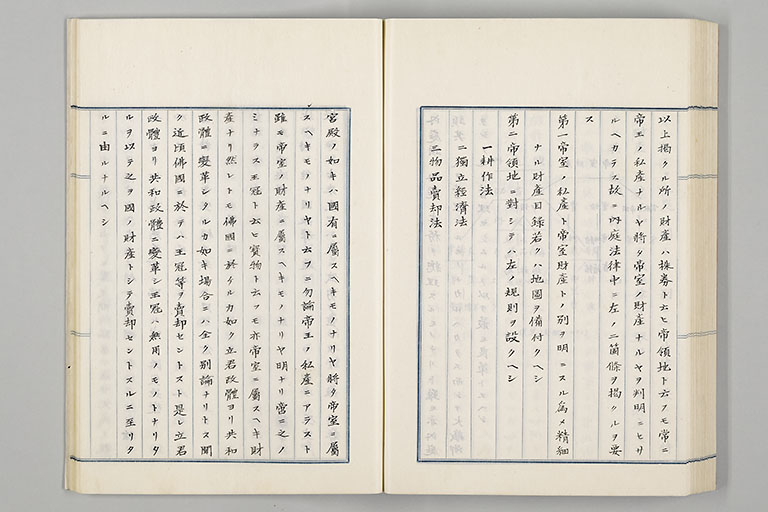 以上揭クル所ノ財產ハ株券ト云ヒ帝領地ト云フモ常ニ
帝王ノ私產ナルヤ將タ帝室ノ財產ナルヤヲ判明ニセサ
ルヘカラス故ニ內庭法律中ニ左ノ二箇條ヲ揭クルヲ要
ス
第一帝室ノ私產ト帝室財產トノ別ヲ明ニスル為メ精細
ナル財產目錄若クハ地圖ヲ備付クヘシ
第二帝領地ニ對シテハ左ノ規則ヲ設クヘシ
一耕作法
二獨立經濟法
三物品賣却法
宮殿ノ如キハ國有ニ屬スヘキモノナリヤ將タ帝室ニ屬
スヘキモノナリヤト云フニ勿論帝王ノ私產ニアラスト
雖モ帝室ノ財產ニ屬スヘキモノナリヤ明ナリ啻ニ之ノ
ミナラス王冠ト云ヒ寶物ト云フモ亦帝室ニ屬スヘキ財
產ナリ然レトモ佛國ニ於ケルカ如ク立君政體ヨリ共和
政體ニ變革シタルカ如キ場合ニハ全ク別論ナリトス聞
ク近頃佛國ニ於テハ王冠等ヲ賣却セントスト是レ立君
政體ヨリ共和政體ニ變革シ王冠ハ無用ノモノトナリタ
ルヲ以テ之ヲ國ノ財產トシテ賣却セントスルニ至リタ
ルニ由ルナルヘシ